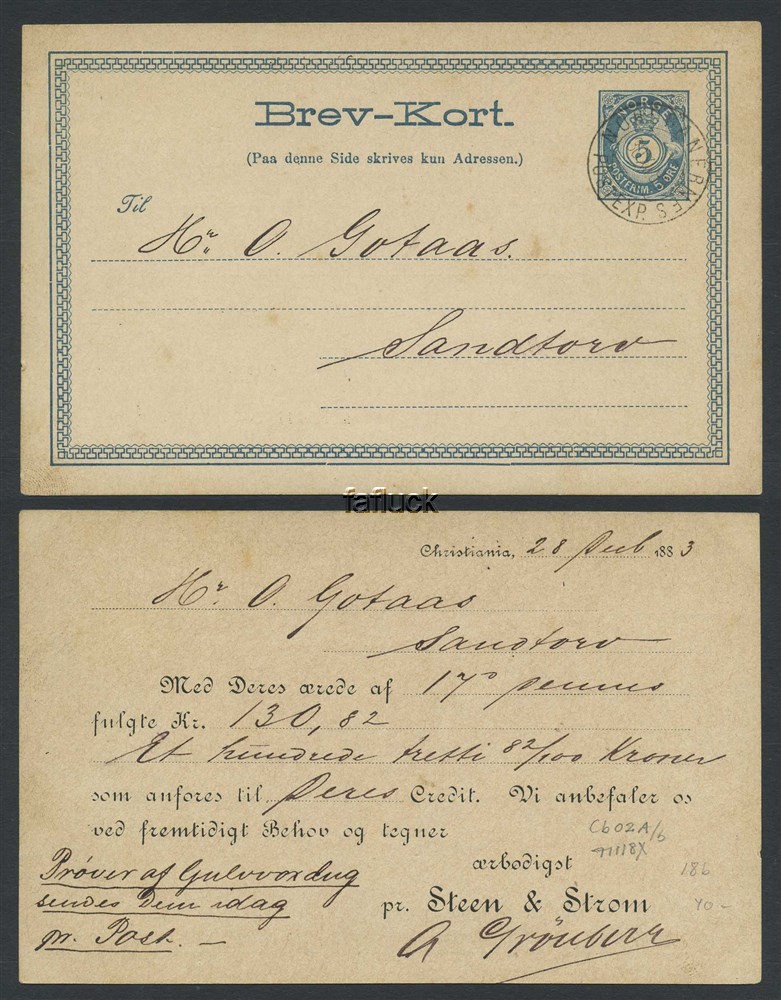 Brev-Kort.
(Paa denne Side skrives kun Adressen.)
NORGE
5
POSTFRIM. 5 ØRE
POSTEXP. S.
Til
Hr. O. Gotaas.
Sandtorv
fafluck
Christiania, 28 1883
Hr. O. Gotaas
Sandtorv
Med Deres ærede af 17º
fulgte Kr. 130,82
Et hundrede tretti 82/100 Kroner
som anføres til Deres Credit. Vi anbefaler os
ved fremtidigt Behov og tegner
ærbødigst
pr. Steen & Strøm
Prøver af Gulvvoxdug
sendes Dem idag
pr. Post. —
Cb02A/b
186
40-